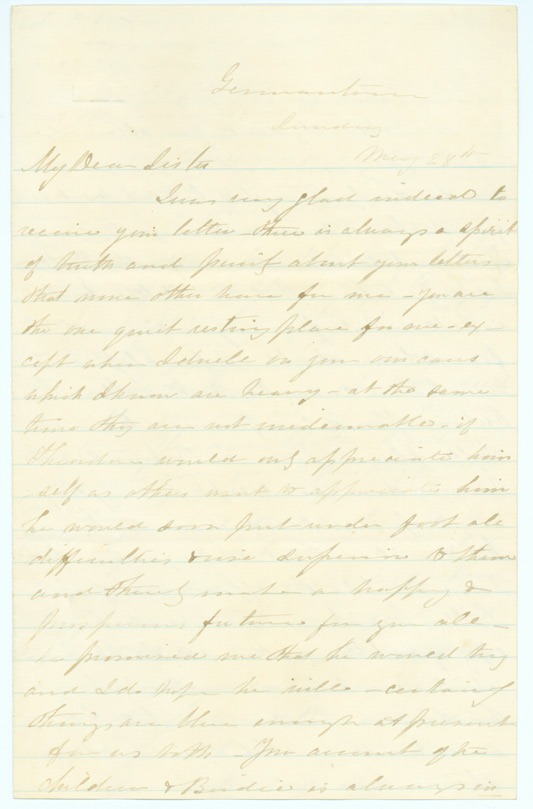 Germantown
Sunday
May 28th
My Dear Sister
I was very glad indeed to
receive your letter - there is always a spirit
of truth and purity about your letters
that none other have for me - you are
the one quiet resting place for me - ex-
cept when I dwell on your own cares
which I know are heavy - at the same
time they are not - if
Theodore would only appreciate him
self as others want to appreciate him
he would soon put under foot all
difficulties & rise superior to them
and thereby make a happy &
prosperous future for you all -
he promised me that he would try
and I do hope he will - certainly
things are blue enough at present
for us both - Your account of the
children & Birdie is always in